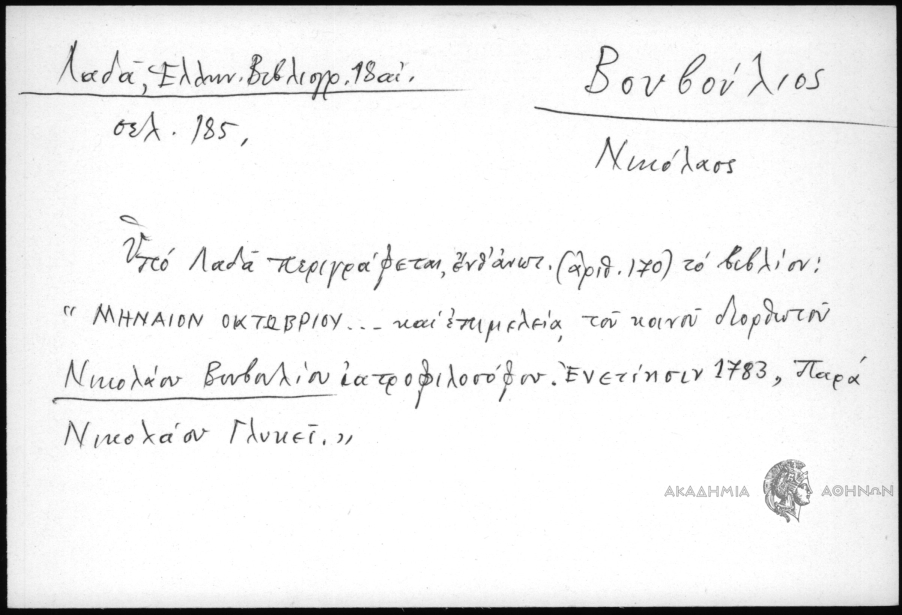 Λαδᾶ, Ἑλλην. Βιβλιογρ. 18 αἰ.
σελ. 185,
Βουβούλιος
Νικόλαος
Ὑπό Λαδᾶ περιγράφεται, ἔνθ' ἀνωτ. (ἀριθ. 170) τό βιβλίον:
"ΜΗΝΑΙΟΝ ΟΚΤΩΒΡΙΟΥ... καί ἐπιμελείᾳ τοῦ κοινοῦ διορθωτοῦ
Νικολάου Βουβουλίου ἰατροφιλοσόφου. Ἐνετίησιν 1783, Παρά
Νικολάου Γλυκεῖ.,,
ΑΚΑΔΗΜΙΑ ΑΘΗΝΩΝ